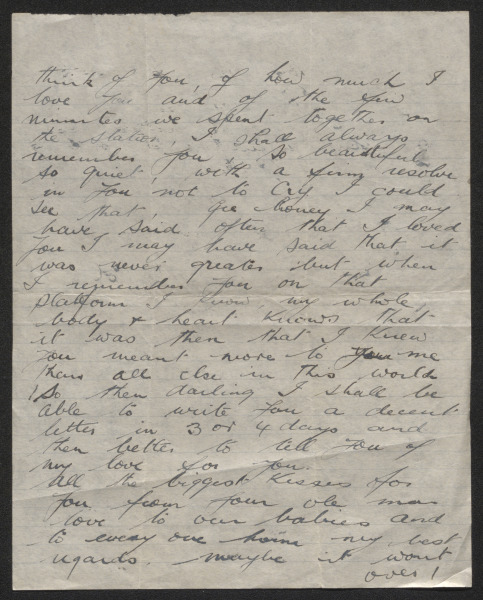 think of you, of how much I
love you and of the few
minutes we spent together on
the station, I shall always
remember you, so beautiful
so quiet, with a firm resolve
in you not to cry I could
see that, gee honey I may
have said often that I loved
you I may have said that it
was never greater but when
I remember you on that
platform I know my whole
body & heart knows that
it was then that I knew
you meant more to you me
than all else in this world
So then darling I shall be
able to write you a decent
letter in 3 or 4 days and
then better to tell you of
my love for you.
All the biggest kisses for
you from your ole man
love to our babies and
to every one home my best
regards, maybe it wont
over!